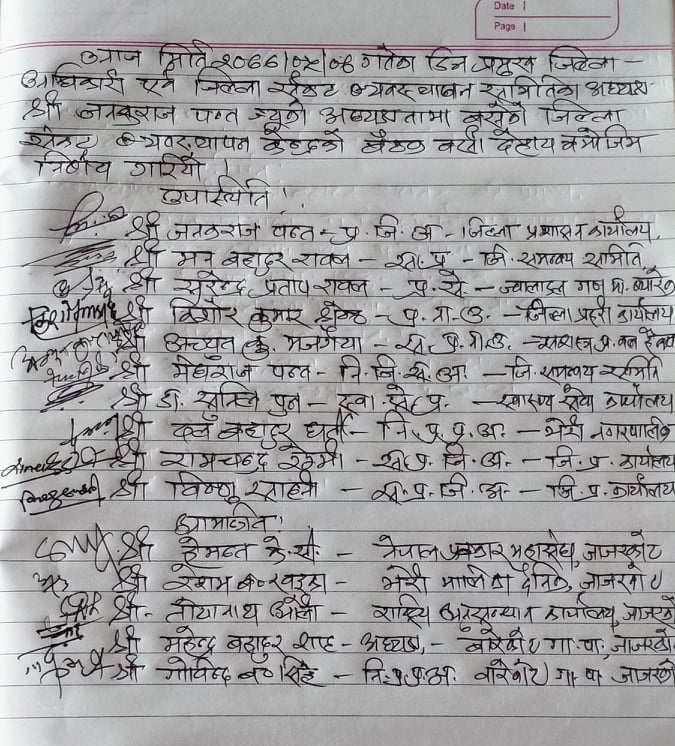 Date
Page
आज मिति २०८८।०५।०८ गतेका दिन प्रमुख जिल्ला
अधिकारी एवं जिल्ला संकट व्यवस्थापन समितिका अध्यक्ष
श्री जनकराज पन्त ज्यूको अध्यक्षतामा बसेको जिल्ला
संकट व्यवस्थापन केन्द्रको बैठक बसी देहाय बमोजिम
निर्णय गरियो।
उपस्थिति:
श्री जनकराज पन्त - प्र. जि. अ - जिल्ला प्रशासन कार्यालय,
श्री मन बहादुर रावल - स. प्र. - जि. समन्वय समिति
श्री सुरेन्द्र प्रताप रावल - प्र. से. - ज्वालादल गण
श्री किशोर कुमार श्रेष्ठ - प्र. ना. उ. - जिल्ला प्रहरी कार्यालय
श्री अच्युत - सशस्त्र प्र. बल
श्री मेघराज पन्त - नि. जि. स. अ. - जि. समन्वय समिति
श्री डा. पुन - स्वा. से. प्र. - स्वास्थ्य सेवा कार्यालय
श्री बहादुर घर्ती - नि. प्र. प्र. अ. - भेरी नगरपालिका
श्री रामचन्द्र रेग्मी - स. प्र. जि. अ. - जि. प्र. कार्यालय
श्री विष्णु - स. प्र. जि. अ. - जि. प्र. कार्यालय
आमन्त्रित:
श्री हेमन्त के. सी. - नेपाल पत्रकार महासंघ, जाजरकोट
श्री - भेरी मालिका दैनिक, जाजरकोट
श्री - तोयानाथ - राष्ट्रिय अनुसन्धान कार्यालय, जाजरको
श्री महेन्द्र बहादुर शाह - अध्यक्ष, - बारेकोट गा. पा. जाजरको
श्री गोविन्द सिंह - नि. प्र. प्र. अ. बारेकोट गा. पा. जाजरको